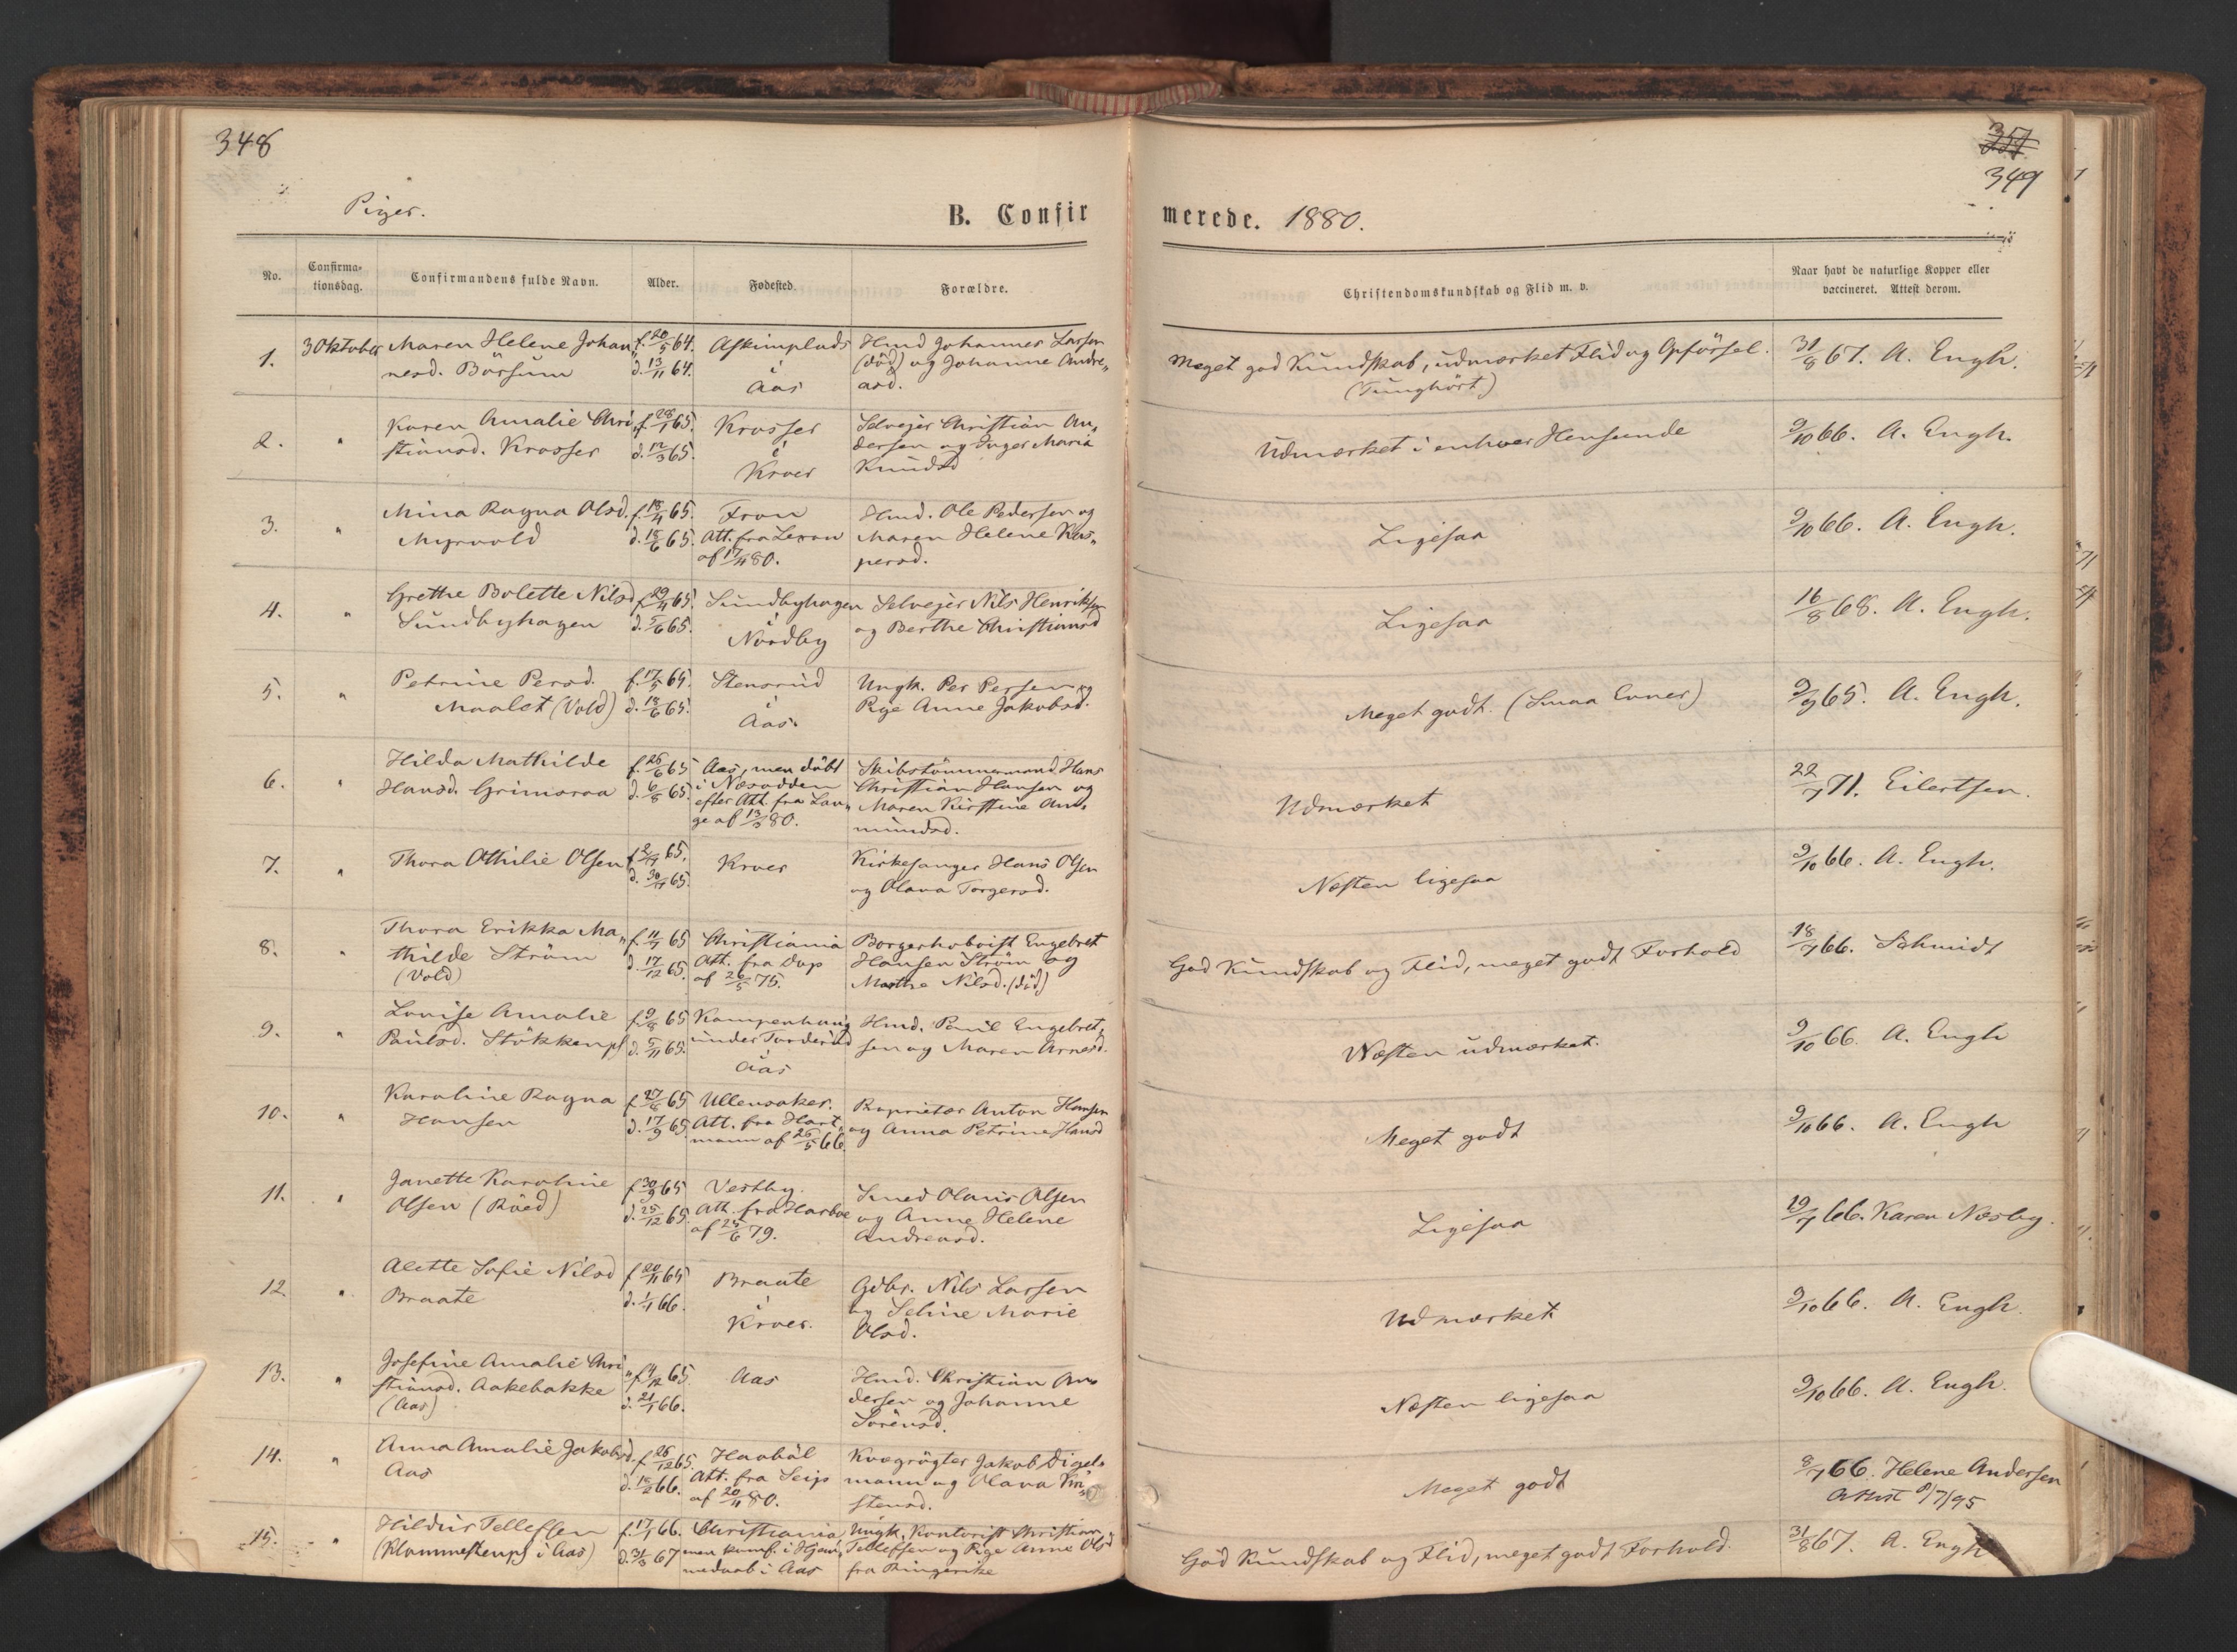 348
Piger.
B. Confir
No.
Confirma-
tionsdag.
Confirmandens fulde Navn.
Alder.
Fødested.
Forældre.
1.
3 Oktober
Maren Helene Johan„
nesd. Bärsum
f. 20/5 64.
d. 13/11 64.
Askimplads
i
Aas
Hmd Johannes Larsen
(död) og Johanne Andre„
asd.
2.
"
Karen Amalie Chri„
stiansd. Krosser
f. 28/1 65.
d. 12/3 65.
Krosser
i
Kroer
Selvejer Christian An„
dersen og Inger Maria
Knudsd
3.
"
Mina Ragna Olsd.
Myrvold
f. 18/4 65.
d. 18/6 65.
Fron
Att. fra Lexow
af 17/4 80.
Hmd. Ole Pedersen og
Maren Helene Kas„
persd.
4.
"
Grethe Bolette Nilsd
Sundbyhagen
f. 29/4 65.
d. 5/6 65.
Sundbyhagen
i
Nordby
Selvejer Nils Henriksen
og Berthe Christiansd
5.
"
Petrine Persd.
Maalet (Vold)
f. 17/5 65.
d. 18/6 65.
Stensrud
i
Aas.
Ungk. Per Persen og
Pige Anne Jakobsd.
6.
"
Hilda Mathilde
Hansd. Grimsraa
f. 26/6 65
d. 6/8 65.
Aas, men döbt
i Næsodden
efter Att. fra Lan„
ge af 13/3 80.
Skibstömmermand Hans
Christian Hansen og
Maren Kirstine Am„
mundsd.
7.
"
Thora Othilie Olsen
65.
d. 30/ 65.
Kroer
Kirkesanger Hans Olsen
og Olava Torgersd.
8.
"
Thora Erikka Ma„
thilde Ström
(Vold)
f. 11/7 65
d. 17/12 65.
Christiania
Att. fra Dop
af 26/5 75.
Borgerhoboist Engebret
Hansen Ström og
Marthe Nilsd. (död)
9.
"
Lovise Amalie
Paulsd. Stökken
f. 9/8 65
d. 5/11 65.
Kampenhaug
under Torderud
i
Aas
Hmd. Paul Engebret„
sen og Maren Arnesd.
10.
"
Karoline Ragna
Hansen
f. 27/8 65
d. 17/9 65.
Ullensaker.
Att. fra Hart„
mann af 26/5 66.
Proprietær Anton Hansen
og Anna Petrine Hansd
11.
"
Janette Karoline
Olsen (Röed)
f. 30/9 65
d. 25/12 65.
Vestby.
Att. fra Harboe
af 25/6 79.
Smed Olaus Olsen
og Anne Helene
Andreasd.
12.
"
Alette Sofie Nilsd
Braate
f. 20/11 65
d. 1/1 66.
Braate
i
Kroer.
Gdbr. Nils Larsen
og Seline Marie
Olsd.
13.
"
Josefine Amalie Chri„
stiansd. Aakebakke
(Aas)
f. 4/12 65.
d. 21/1 66.
Aas
Hmd. Christian An„
dersen og Johanne
Sörensd.
14.
"
Anna Amalie Jakobsd.
Aas
f. 26/12 65.
d. 18/2 66.
Haaböl
Att. fra Seip
af 20/4 80.
Kvægrögter Jakob Digel„
mann og Olava Kri„
stensd.
15.
"
Hildur Tellefsen
i Aas)
f. 17/1 66.
d. 31/3 67
Christiania
men konf. i Hjem„
medaab i Aas
Ungk. Kontorist Christian
Tellefsen og Pige Anne Olsd
fra Ringerike
349
merede. 1880.
Christendomskundskab og Flid m. v.
Naar havt de naturlige Kopper eller
vaccineret. Attest derom.
Meget god Kundskab, udmærket Flid og Opförsel.
(Tunghört)
31/8 67. A. Engh.
Udmærket i enhver Henseende
9/10 66. A. Engh.
Ligesaa
9/10 66. A. Engh.
Ligesaa
16/8 68. A. Engh.
Meget godt. (Smaa Evner)
9/9 65. A. Engh.
Udmærket
22/7 71. Eilertsen.
Næsten ligesaa
9/10 66. A. Engh.
God Kundskab og Flid, meget godt Forhold
18/7 66. Schmidt
Næsten udmærket.
9/10 66. A. Engh
Meget godt
9/10 66. A. Engh
Ligesaa
19/7 66. Karen Næsby.
Udmærket
9/10 66. A. Engh.
Næsten ligesaa
9/10 66. A. Engh.
Meget godt
8/7 66. Helene Andersen
Attest 8/7/95
God Kundskab og Flid, meget godt Forhold.
31/8 67. A. Engh